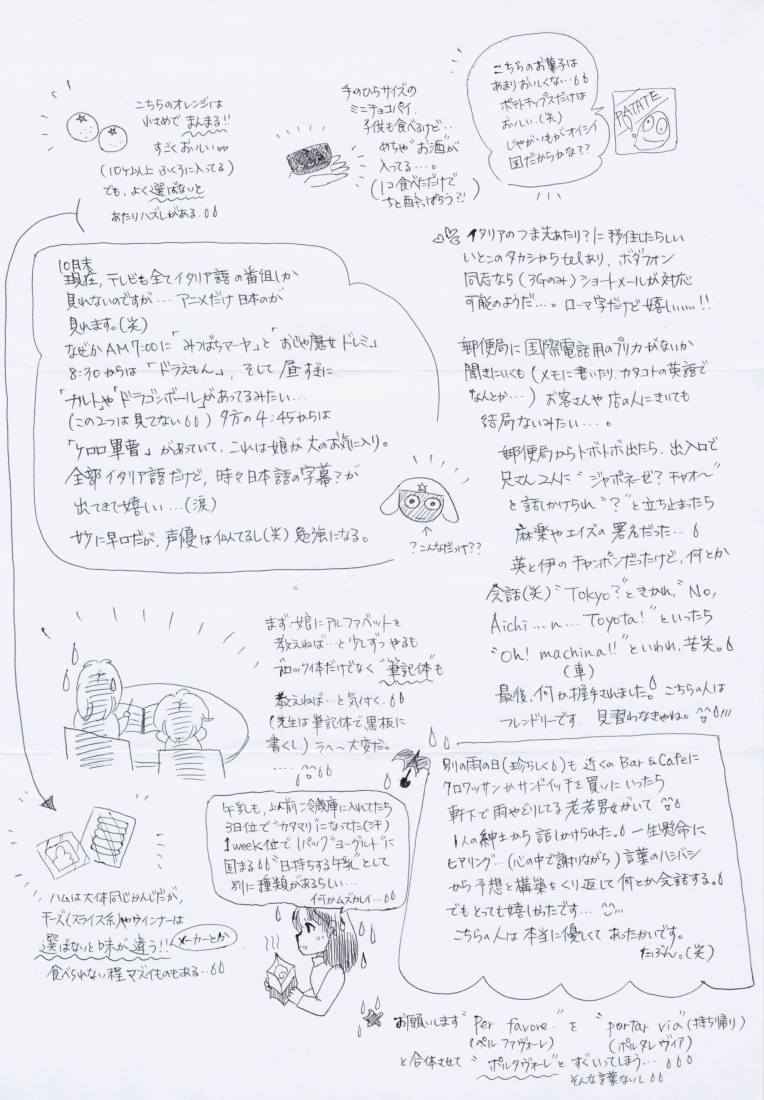 こちらのオレンジは
小さめで まんまる!!
すごくおいしい
(10ケ以上 ふくろに入ってる)
でも、よく選ばないと
あたりハズレがある.
手のひらサイズの
ミニチョコパイ.
子供も食べるけど…
めちゃ"お酒"が
入ってる…。
(1コ食べただけで
ちと酔っぱらう?!)
こちらのお菓子は
あまりおいしくない…
ポテトチップスだけは
おいしい.(笑)
じゃがいもがオイシイ
国だからかな??
PATATE
10月末
現在, テレビも全てイタリア語の番組しか
見れないのですが… アニメだけ日本のが
見れます。(笑)
なぜかAM7:00に「みつばちマーヤ」と「おじゃ魔女ドレミ」
8:30からは「ドラえもん」, そして 昼すぎに
「ナルト」や「ドラゴンボール」があってるみたい…
(この2つは見てない) 夕方の4:45からは
「ケロロ軍曹」があっていて, これは娘が大のお気に入り。
全部イタリア語だけど, 時々日本語の字幕?が
出てきて嬉しい…(涙)
妙に早口だが, 声優は似てるし(笑) 勉強になる。
?こんなだっけ??
イタリアのつま先あたり?に移住したらしい
いとこのタカシからtelあり、ボダフォン
同志なら(3Gのみ)ショートメールが対応
可能のようだ…。ローマ字だけど嬉しい……!!
郵便局に国際電話用のプリカがないか
聞きにいくも(メモに書いたり, カタコトの英語で
なんとか…) お客さんや店の人にきいても
結局ないみたい…。
郵便局からトボトボ出たら, 出入口で
兄さん2人に"ジャポネーゼ? チャオ〜"
と話しかけられ"?"と立ち止まったら
麻薬やエイズの署名だった…
英と伊のチャンポンだったけど, 何とか
会話(笑)"Tokyo?"ときかれ,"No,
Aichi…n… Toyota!"といったら
"Oh! machina!!"といわれ, 苦笑。
(車)
最後, 何か握手されました。こちらの人は
フレンドリーです. 見習わなきゃね。
まず娘にアルファベットを
教えねば…と少しずつやるも
ブロック体だけでなく"筆記体"も
教えねば…と気付く.
(先生は筆記体で黒板に
書くし)うへっ大変だ。
別の雨の日(珍らしく)も 近くのBar&Cafeに
クロワッサンやサンドイッチを買いにいったら
軒下で雨やどりしてる老若男女がいて
1人の紳士から話しかけられた。一生懸命に
ヒアリング…(心の中で謝りながら)言葉のハシバシ
から予想と構築をくり返して何とか会話する。
でもとっても嬉しかったです…
こちらの人は本当に優しくて あったかいです。
たぶん。(笑)
牛乳も, 以前冷蔵庫に入れてたら
3日位で"カタマリ"になった(汗)
1week位で1パック"ヨーグルト"に
固まる "日持ちする牛乳"として
別に種類があるらしい…
何かムズカシイ…
ハムは大体同じかんじだが,
チーズ(スライス系)やウインナーは
選ばないと味が違う!!
メーカーとか
食べられない程マズイものもある…
お願いします"Per favore."を "portar via"(持ち帰り)
(ペルファヴォーレ) (ポルタレヴィア)
と合体させて "ポルタヴォーレ"とすぐいってしまう…
そんな言葉ないし